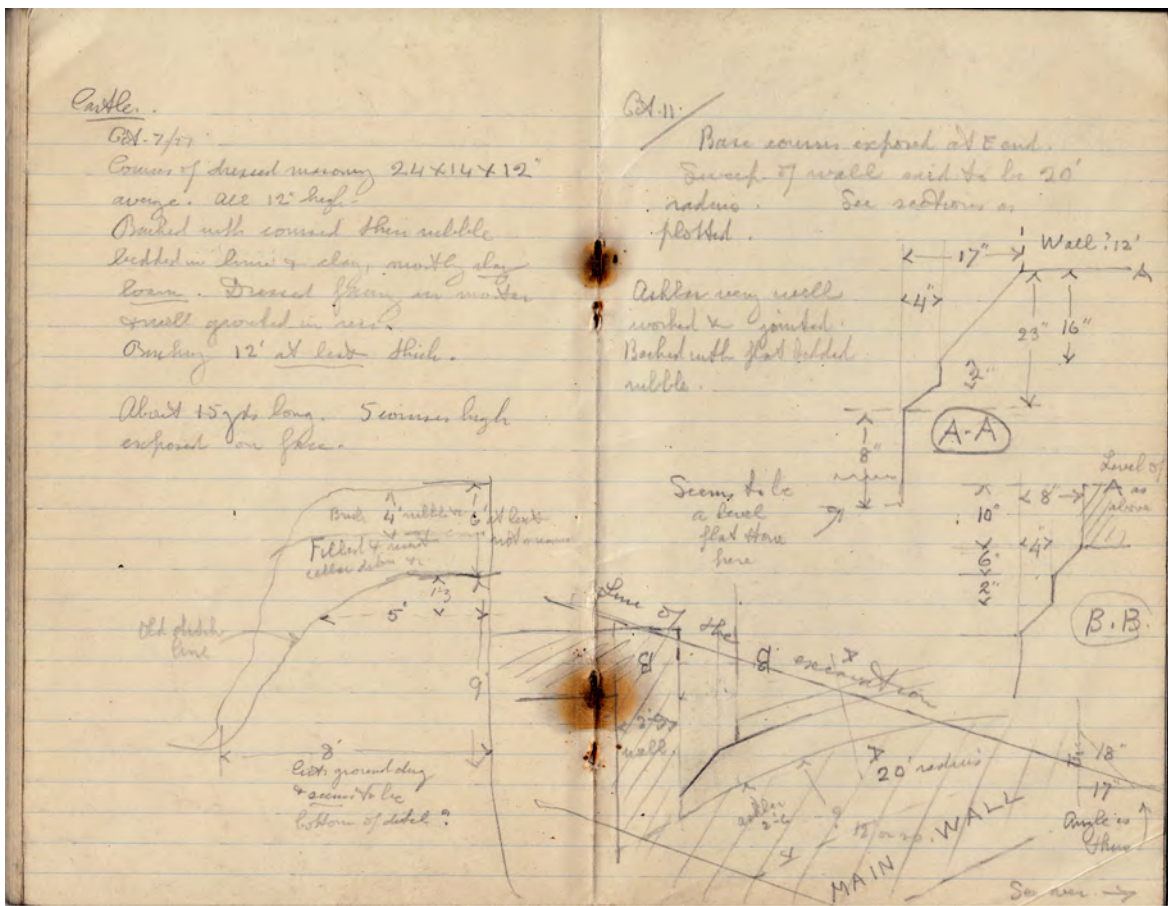 Castle.
Oct-7/
Courses of dressed masonry 24 X 14 X 12"
average. All 12" high.
Backed with coursed thin rubble
bedded in lime & clay, mostly clay
loam. Dressed facing in mortar
& well grouted in
Backing 12' at least thick.
About 15 yds long. 5 courses high
exposed on face.
4' rubble 6' at least
Filled
cellar
1-3
5'
Old ditch
line
9
8'
ground dug
& seems to be
bottom of ditch?
Oct-11.
Base courses exposed at E end.
Sweep of wall said to be 20'
radius. See sections as
plotted.
17" Wall? 12'
A
4"
Ashlar very well
worked & jointed.
23" 16"
Backed with flat bedded
rubble.
3"
A-A
8"
Seems to be
a level
flat stone
here
Level of
A as
above
8"
10"
4"
6"
2"
B.B.
Line of the excavation
B B
wall
20' radius
ashlar
18"
17"
12' or so.
MAIN WALL
Angle is
thus
See over →